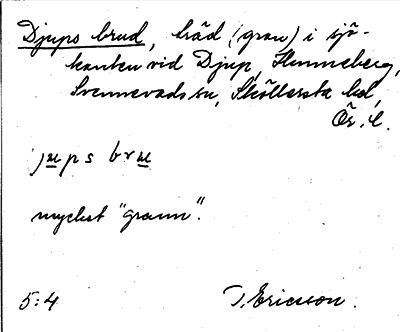 Djups brud, träd (gran) i sjö-
kanten vid Djup, Hemmeberg,
Svennevads sn, Sköllersta hd,
Ör. l.
jups bru
mycket "grann".
5:4 T. Ericsson.